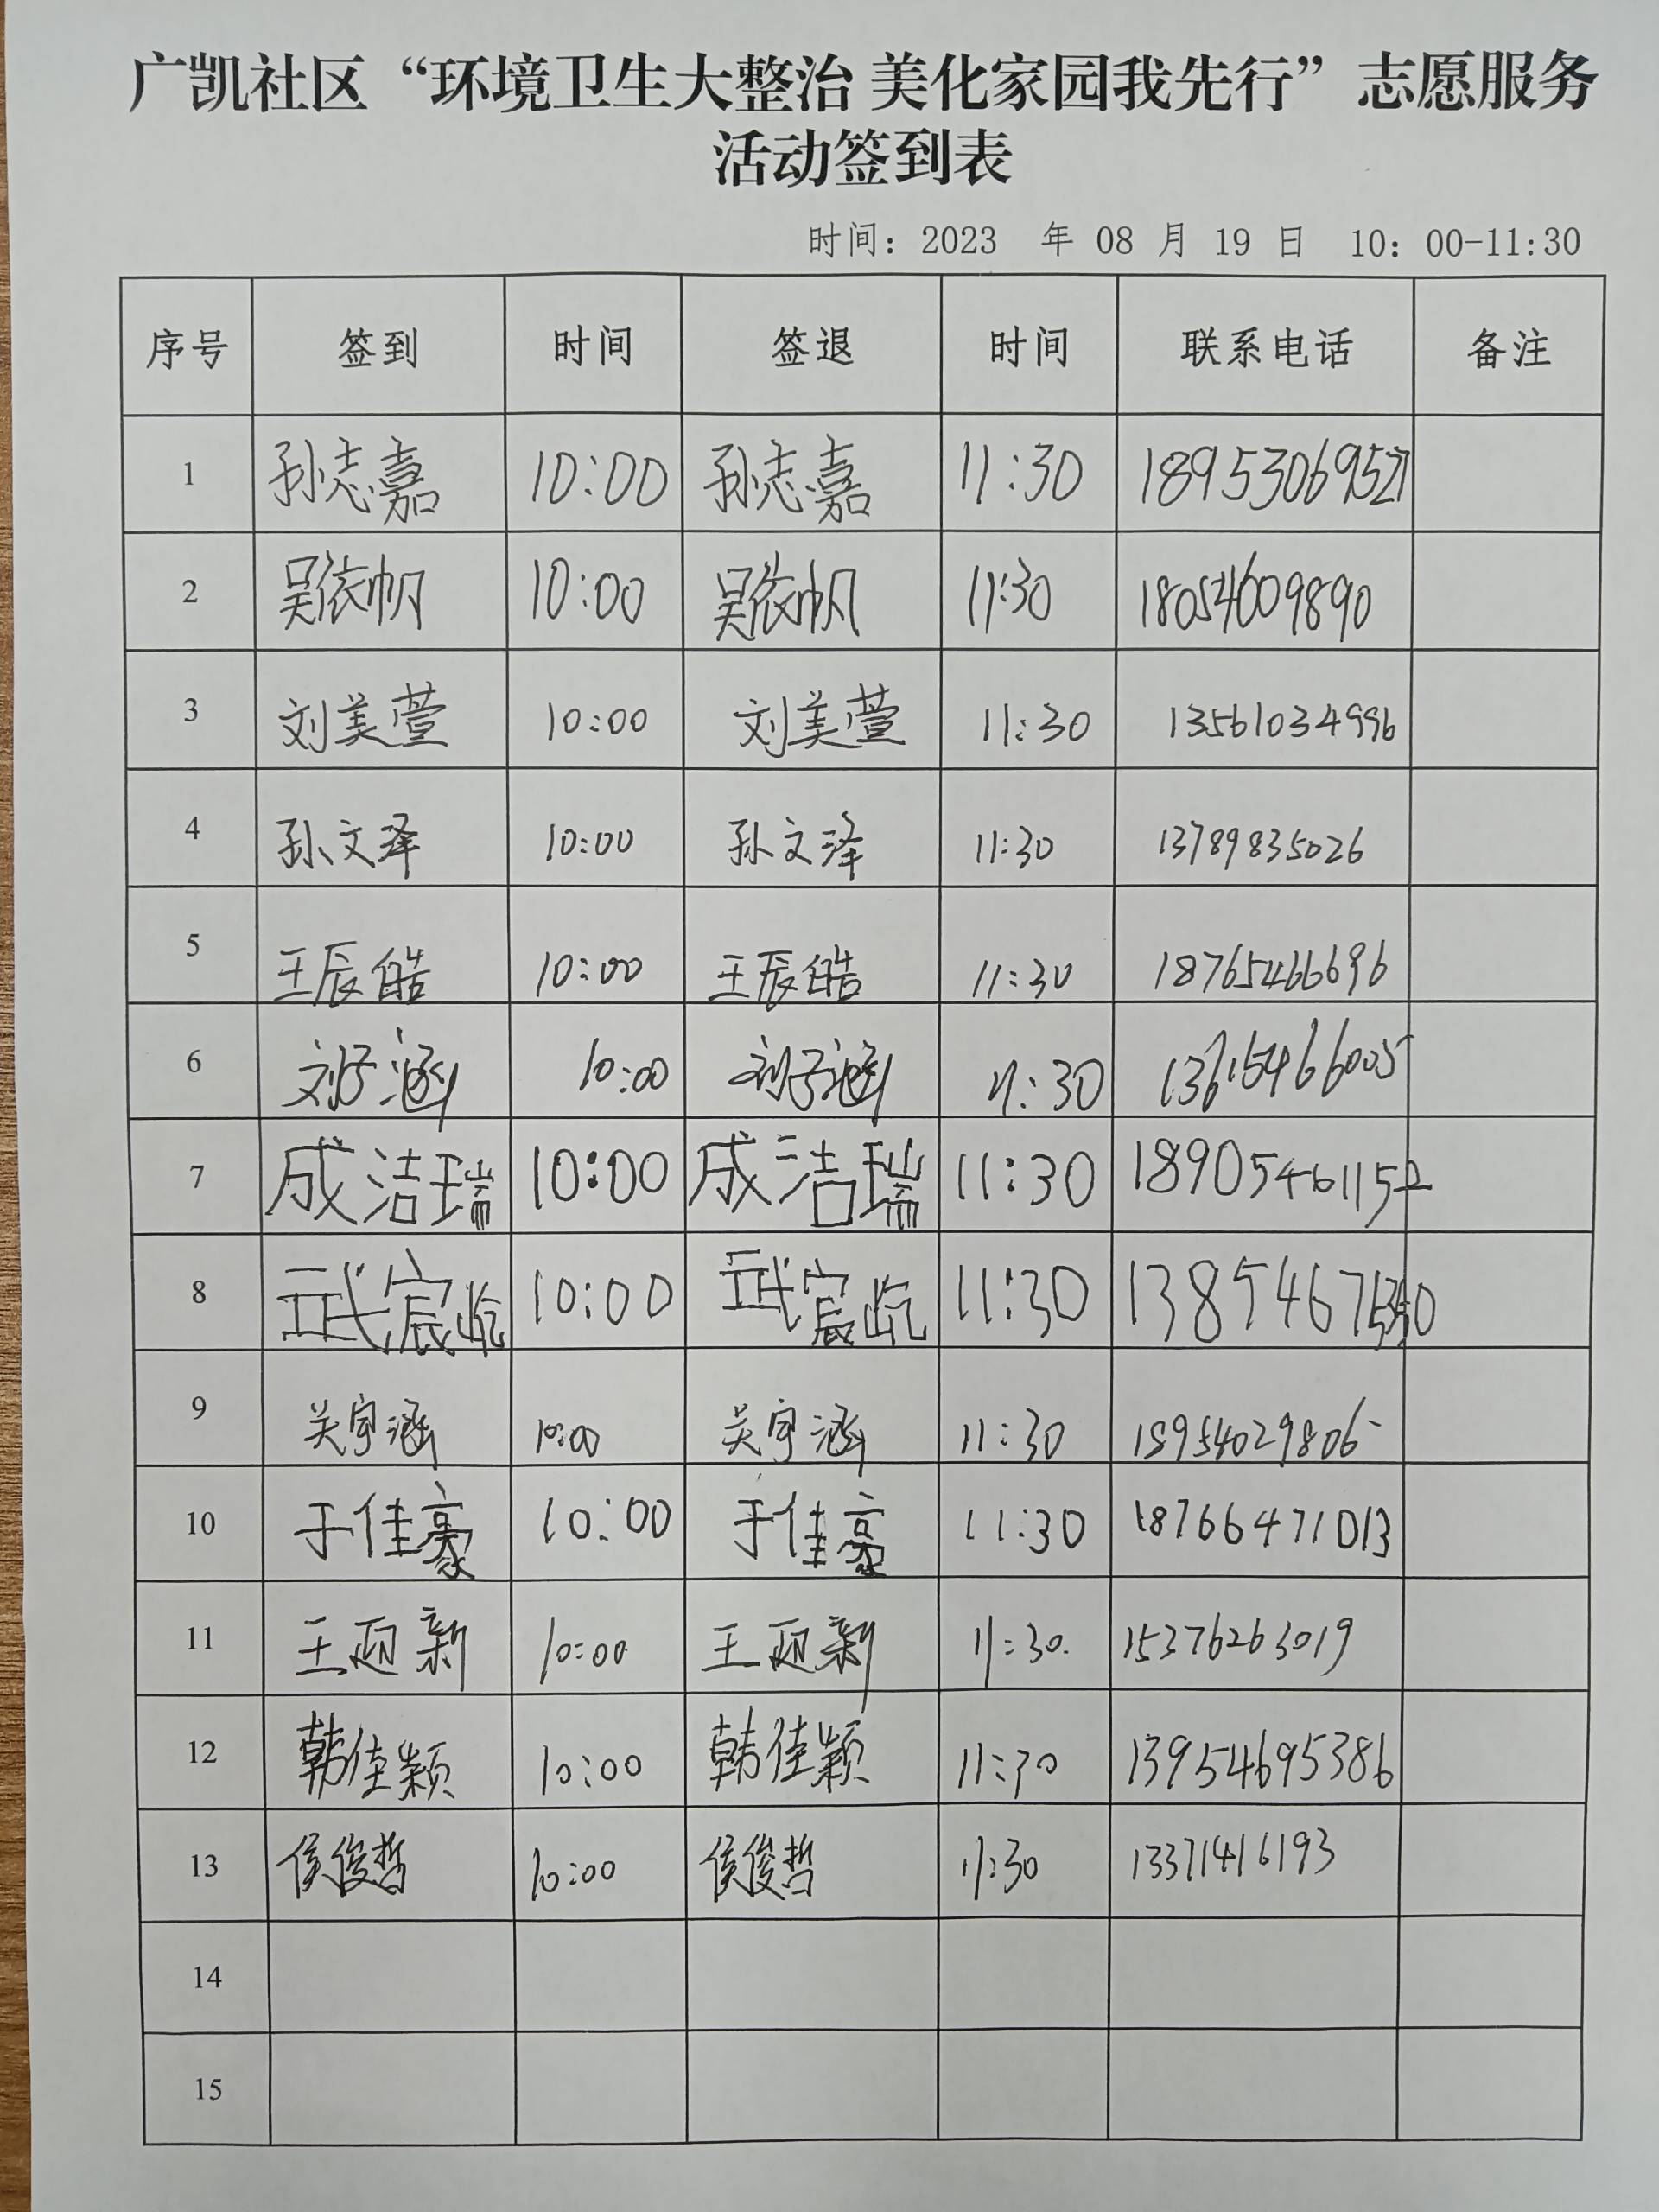 广凯社区“环境卫生大整治 美化家园我先行”志愿服务
活动签到表
时间：2023 年 08 月 19 日 10：00-11:30
序号 签到 时间 签退 时间 联系电话 备注
1 孙志嘉 10:00 孙志嘉 11:30 18953069527
2 吴依帆 10:00 吴依帆 11:30 18054609890
3 刘美萱 10:00 刘美萱 11:30 13561034996
4 孙文泽 10:00 孙文泽 11:30 13789835026
5 王辰皓 10:00 王辰皓 11:30 18765466696
6 刘子涵 10:00 刘子涵 11:30 13615466005
7 成洁瑞 10:00 成洁瑞 11:30 18905461152
8 武宸屹 10:00 武宸屹 11:30
9 吴宇涵 10:00 吴宇涵 11:30 18954029806
10 于佳豪 10:00 于佳豪 11:30 18766471013
11 王 新 10:00 王 新 11:30 15376263019
12 韩佳颖 10:00 韩佳颖 11:30 13954695386
13 侯俊哲 10:00 侯俊哲 11:30 13371416193
14
15